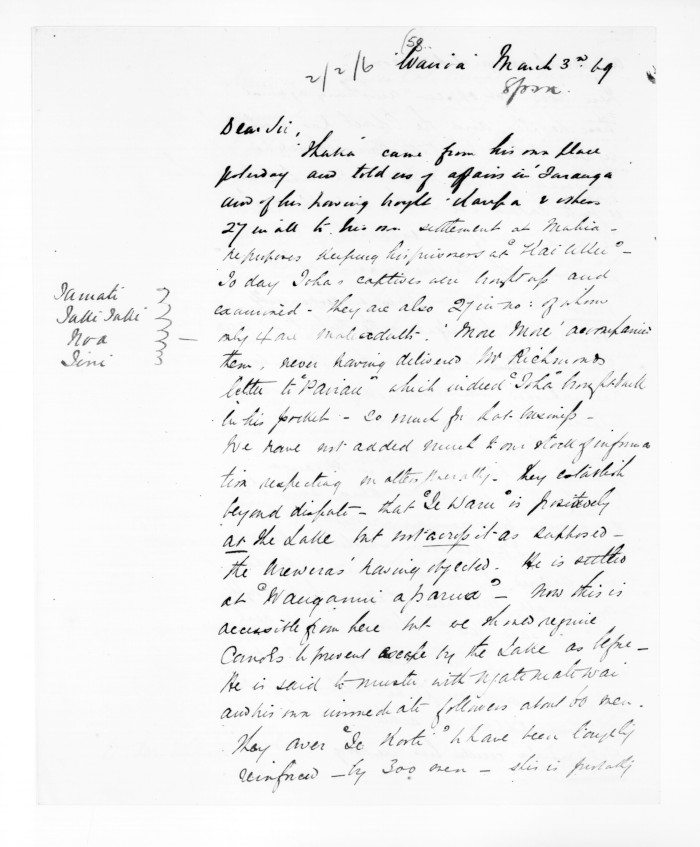 (58
2/2/6 Wairoa March 3rd 69
8 p.m.
Dear Sir,
"Ihaka" came from his own place
yesterday and told us of affairs in Turanga
and of his having brought & others
27 in all to his own settlement at Mahia –
He proposes keeping his prisoners at "Kai Uku" –
To day Ihakas captives were brought up and
examined – They are also 27 in no: of whom
only 4 are male adults. "More More" accompanied
them, never having delivered Mr Richmonds
letter to "Wairau" which indeed "Ihaka" brought back
in his pocket – So much for that business –
We have not added much to our stock of informa
tion respecting matters generally. They establish
beyond dispute – that "Te Waru" is positively
at the Lake but not across it as supposed –
the Urewera's having objected. He is settled
at – Now this is
accessible from here but we should require
Canoes to prevent escape by the Lake as before –
He is said to muster with Ngatimatewai
and his own immediate followers about 60 men.
They aver "Te Kooti" to have been largely
reinforced – by 300 men – this is probably
Tamati
Taki Taki
Noa
Timi